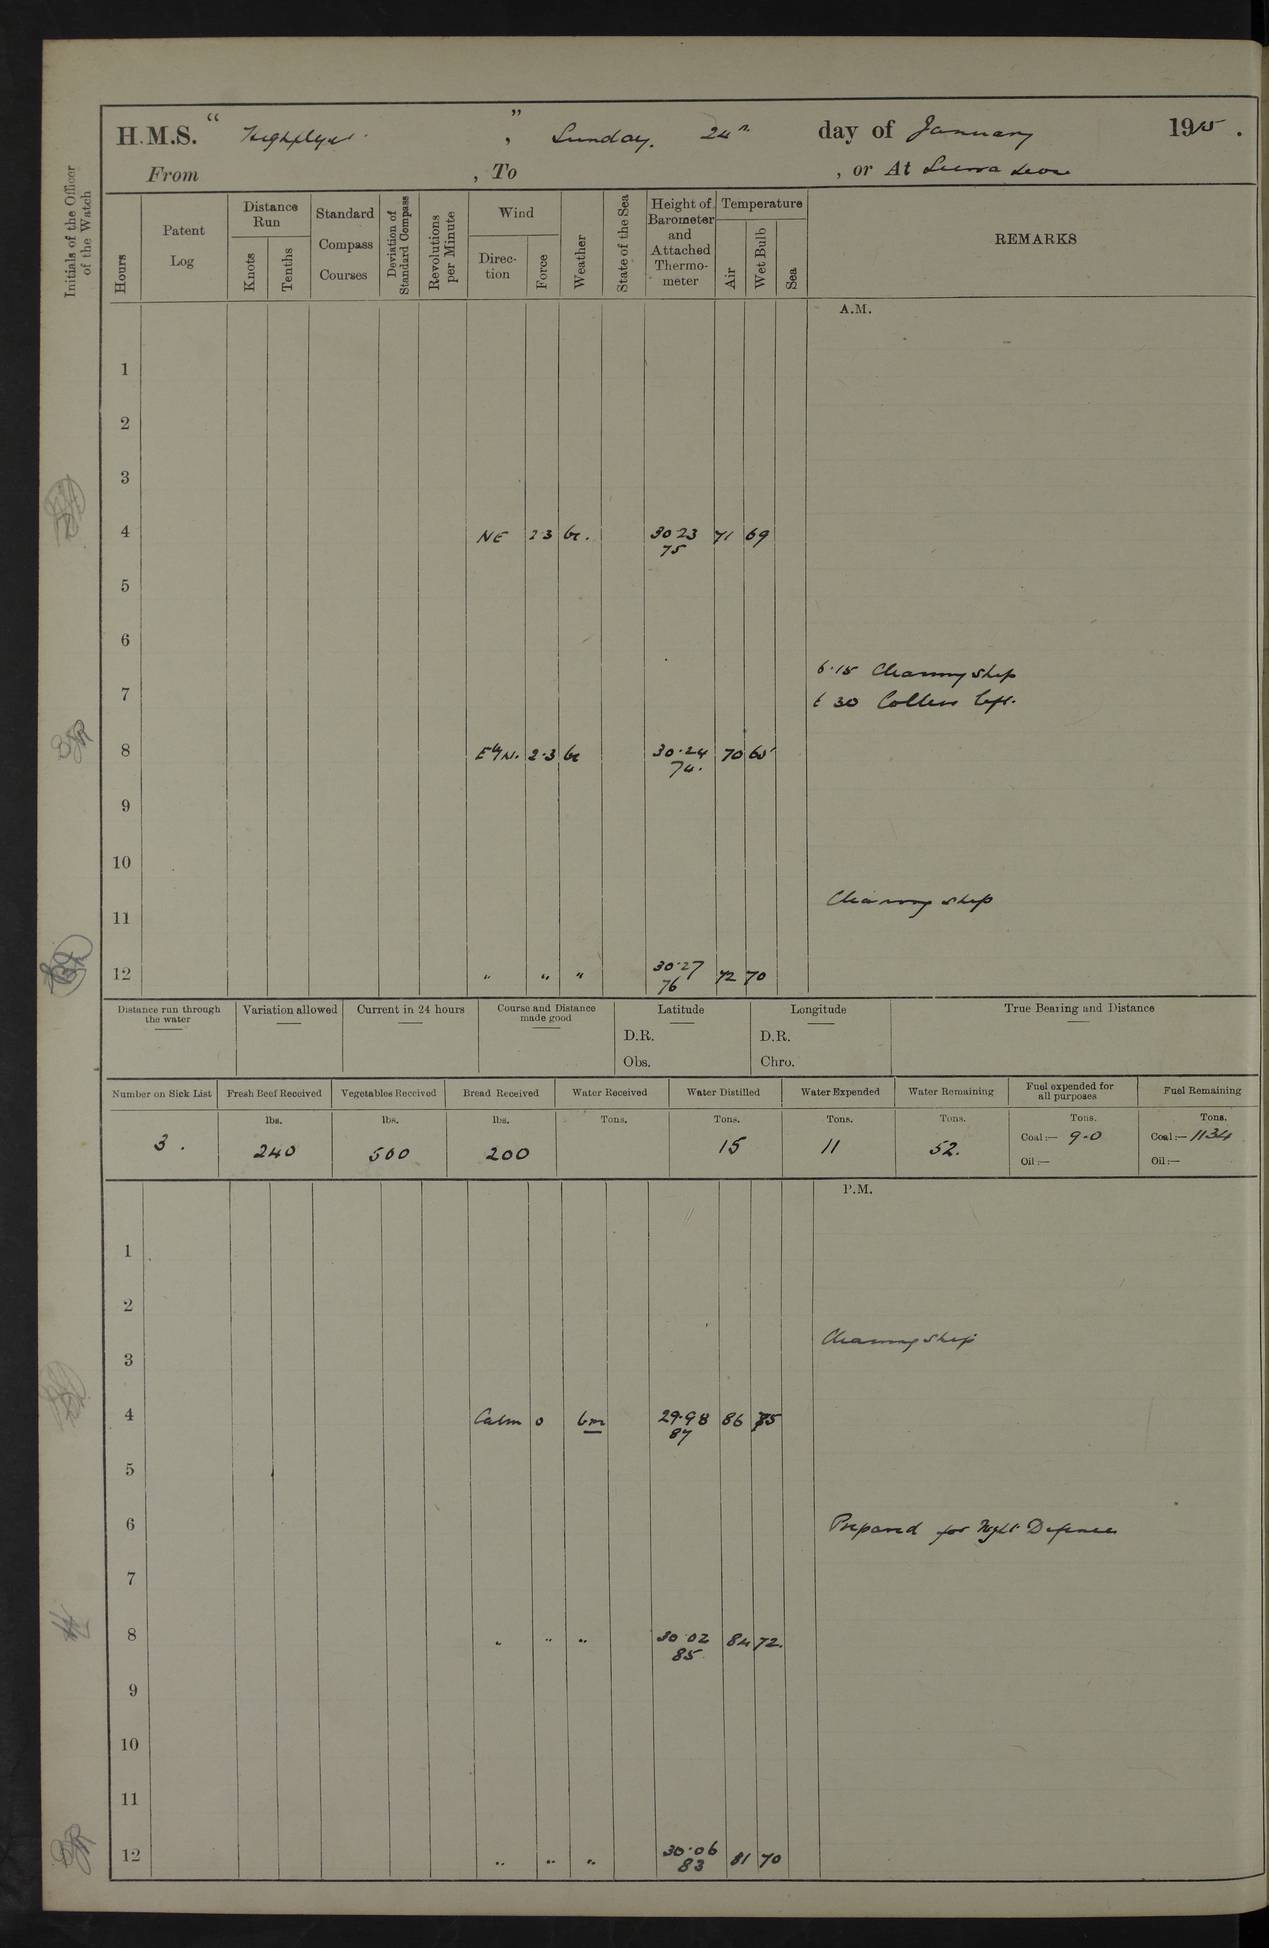 H.M.S. “ Highflyer ” , Sunday. 24th day of January 1915 .
From , To , or At Sierra Leone
Initials of the Officer of the Watch
Hours
Patent Log
Distance Run
Knots
Tenths
Standard Compass Courses
Deviation of Standard Compass
Revolutions per Minute
Wind
Direction
Force
Weather
State of the Sea
Height of Barometer and Attached Thermometer
Temperature
Air
Wet Bulb
Sea
REMARKS
A.M.
1
2
3
4 NE 2.3 bc. 30.23 71 69
75
5
6
6.15 Cleaning ship
7 6 30 Colliers left.
8 E by N. 2.3 bc 30.24 70 65
74.
9
10
Cleaning ship
11
12 " " " 30.27 72 70
76
Distance run through the water
Variation allowed
Current in 24 hours
Course and Distance made good
Latitude
D.R.
Obs.
Longitude
D.R.
Chro.
True Bearing and Distance
Number on Sick List
3 .
Fresh Beef Received
lbs.
240
Vegetables Received
lbs.
500
Bread Received
lbs.
200
Water Received
Tons.
Water Distilled
Tons.
15
Water Expended
Tons.
11
Water Remaining
Tons.
52.
Fuel expended for all purposes
Tons.
Coal:— 9.0
Oil:—
Fuel Remaining
Tons.
Coal:— 1134
Oil:—
P.M.
1
2
Cleaning ship
3
4 Calm 0 bm 29.98 86 75
87
5
6 Prepared for Night Defence
7
8 " " " 30 02 84 72.
85
9
10
11
12 " " " 30.06 81 70
83